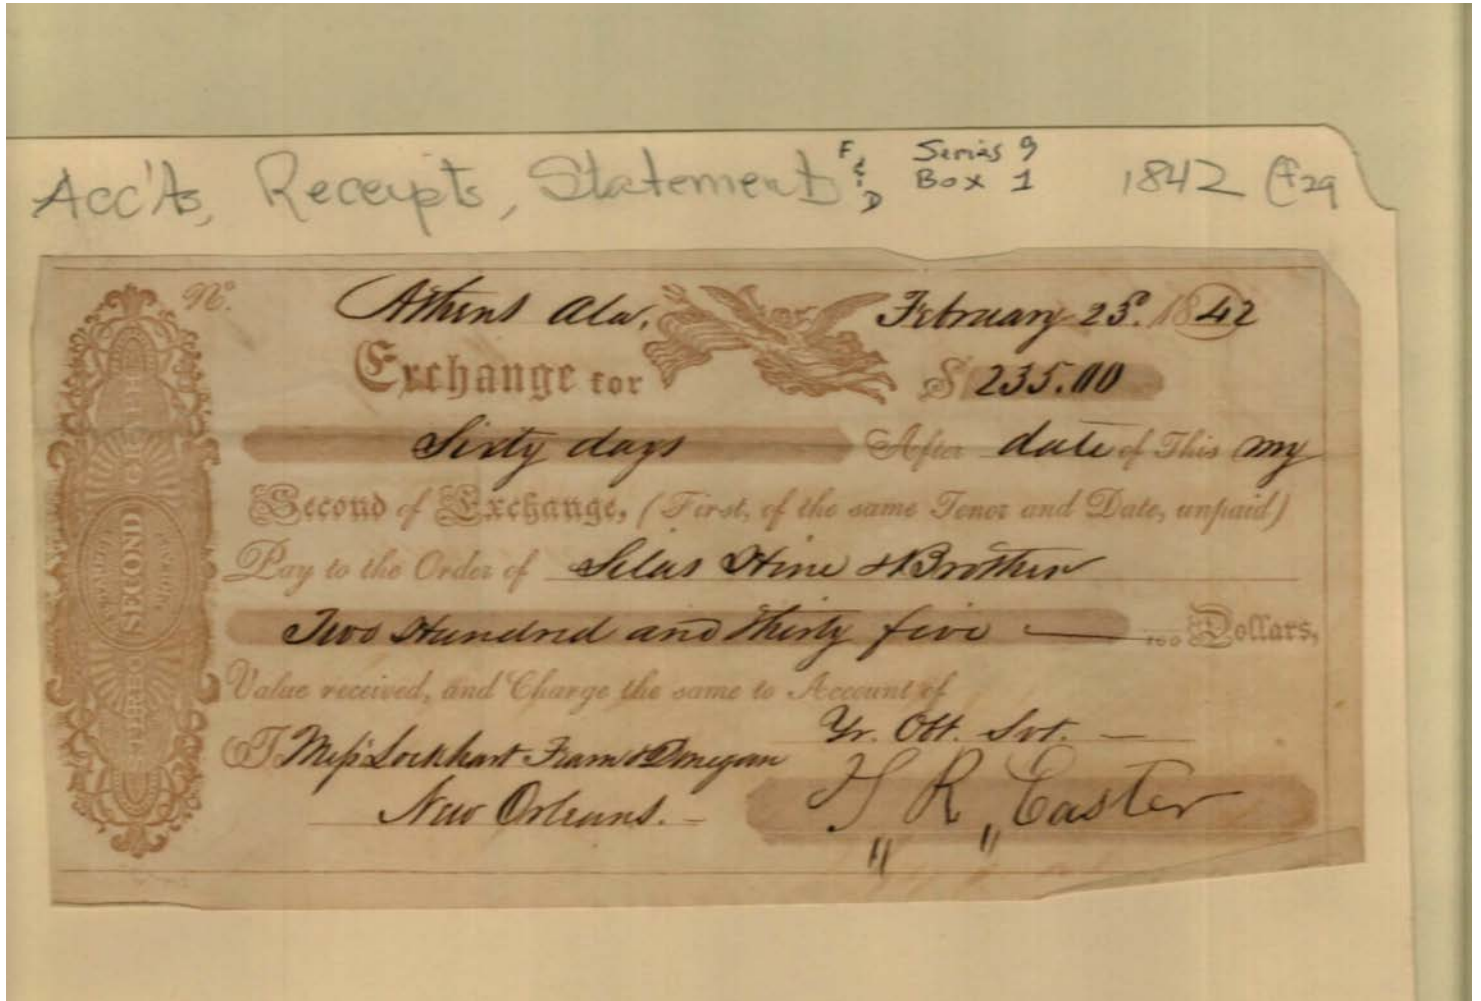 Acc'ts, Receipts, Statement F & D Series 9 1842 (f29
Box 1
No. Athens Ala. February 25th. 1842
Exchange for $ 235.00
Sixty days After date of This my
Second of Exchange, (First, of the same Tenor and Date, unpaid)
Pay to the Order of Silas Hine & Brother
Two Hundred and thirty five — /100 Dollars,
Value received, and Charge the same to Account of
Yr. Obt. Svt. —
To Messrs Lockhart & Donegan
New Orleans. — H R Easter
SECOND